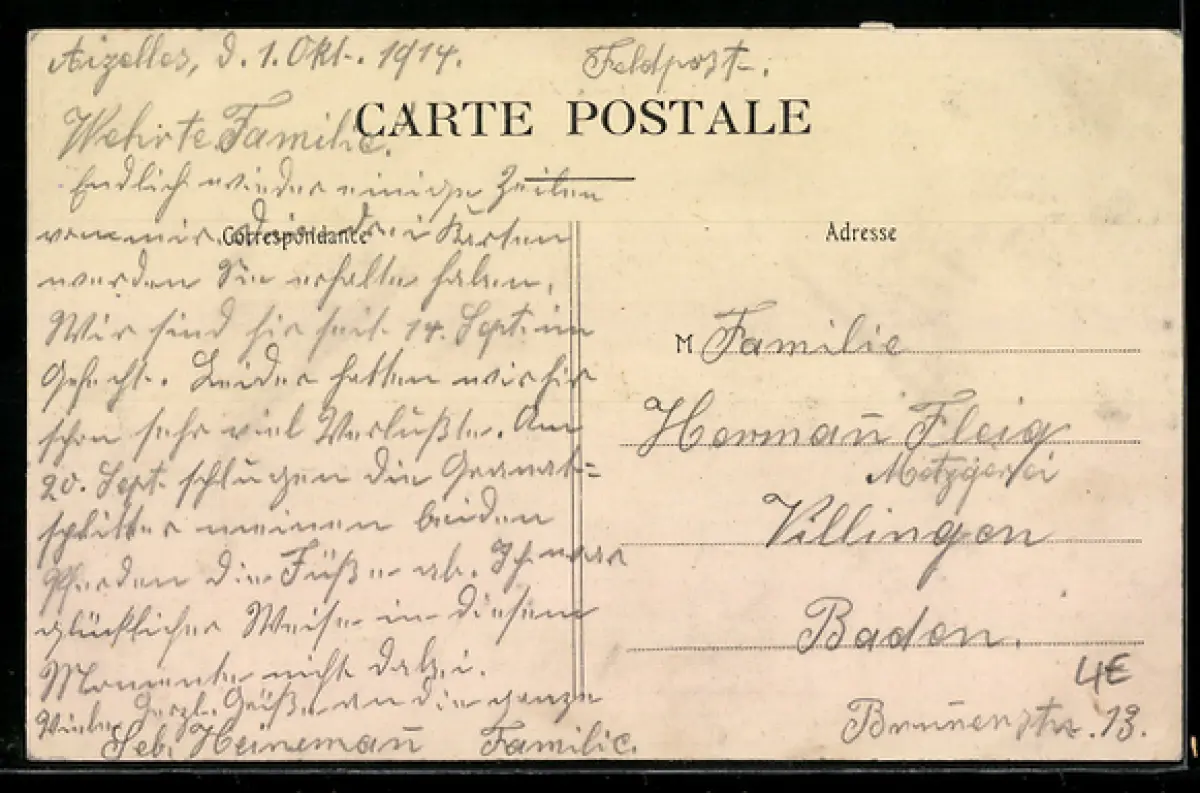 Aizelles, d. 1. Okt. 1914.
Feldpost.
CARTE POSTALE
Wehrte Familie.
Endlich wieder einige Zeilen
von mir. Die drei Karten
Correspondance
werden Sie erhalten haben.
Wir sind hir seit 14. Sept. im
Gefecht. Leider hatten wir hir
schon sehr viel Verlußte. Am
20. Sept. schlugen die Granat=
splitter meinen beiden
Pferden die Füße ab. Ich war
glücklicher Weise in diesem
Momente nicht dabei.
Viele herzl. Grüße an die ganze
Familie.
Seb. Heinemañ
Adresse
M Familie
Hermañ Fleig
Metzgerei
Villingen
Baden.
4€
Bruñenstr. 13.